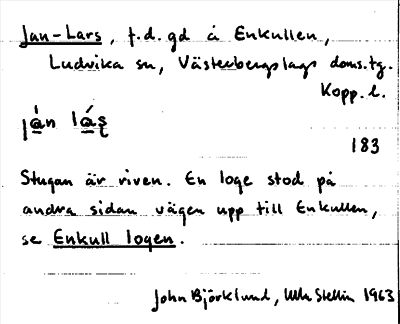 Jan-Lars, f.d. gd å Enkullen,
Ludvika sn, Västerbergslags doms.tg.
Kopp. l.
183
Stugan är riven. En loge stod på
andra sidan vägen upp till Enkullen,
se Enkull logen.
John Björklund, 1963